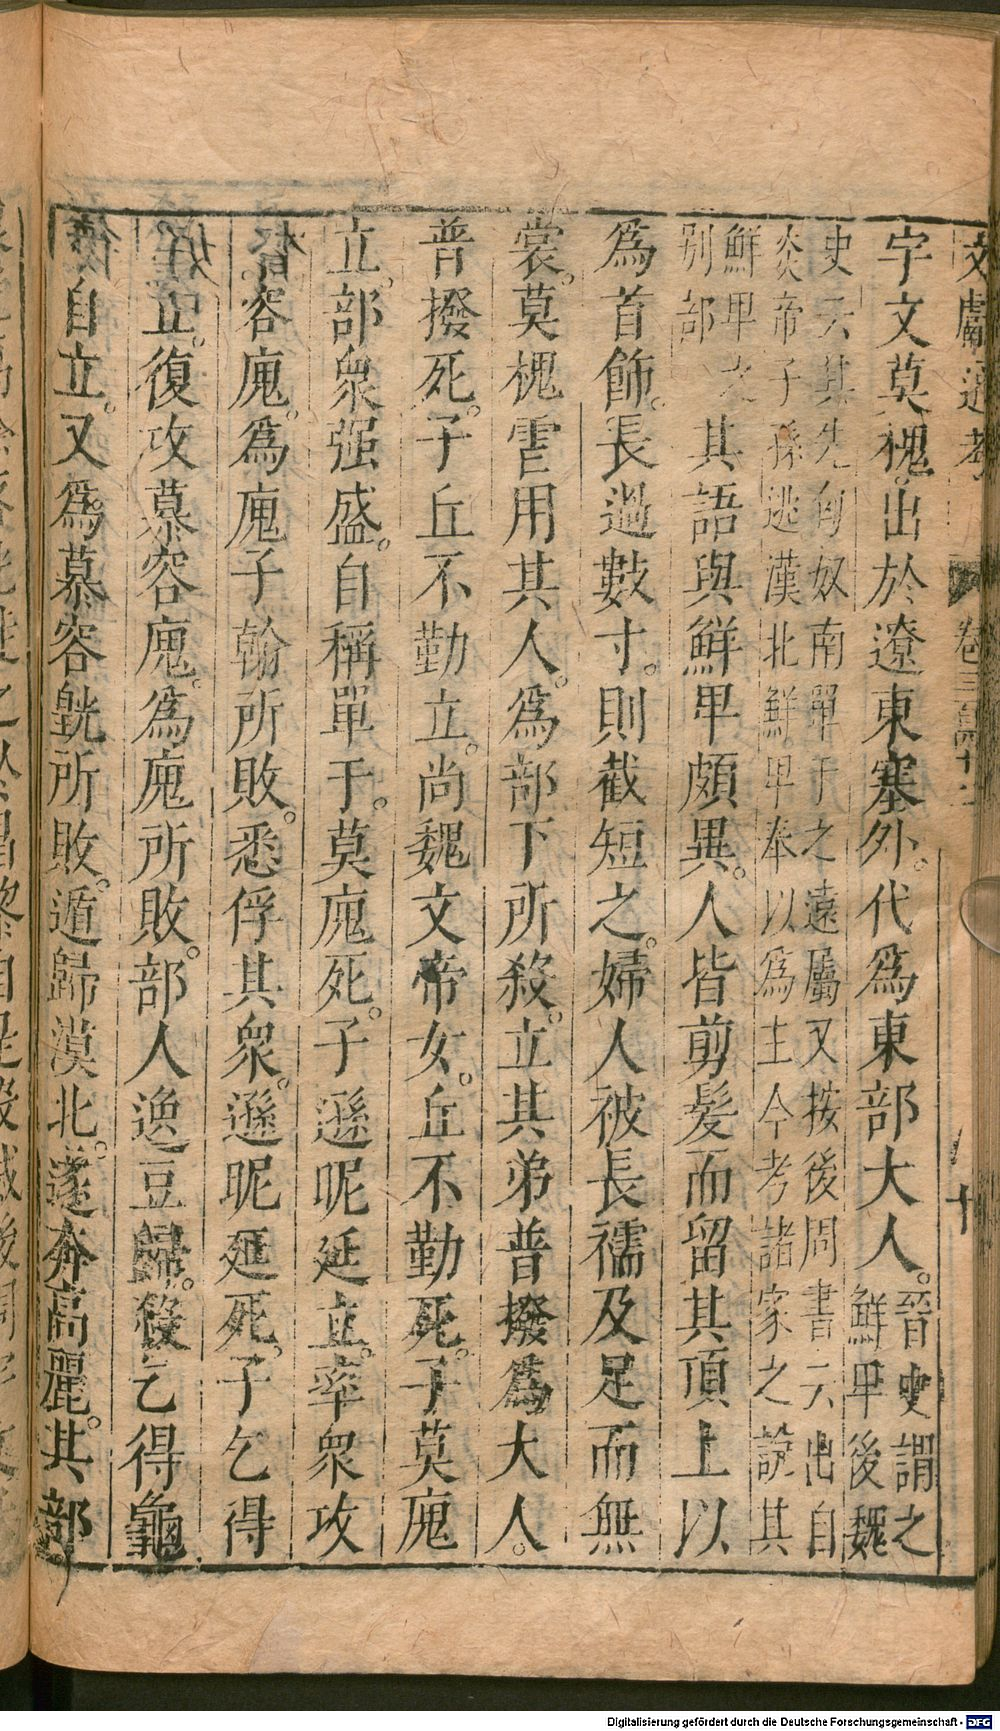 文獻通考 卷三百四十二 十
宇文莫槐。出於遼東塞外。代爲東部大人。晉史謂之
鮮卑後魏
史云其先匈奴南單于之遠屬又按後周書云出自
炎帝子孫逃漢北鮮卑奉以爲主今考諸家之說其
鮮卑之
別部
其語與鮮卑頗異。人皆剪髮而留其頂上以
爲首飾。長過數寸。則截短之。婦人被長襦及足而無
裳。莫槐虐用其人。爲部下所殺。立其弟普撥爲大人。
普撥死。子丘不勤立。尚魏文帝女。丘不勤死。子莫廆
立。部衆强盛。自稱單于。莫廆死。子遜呢延立。率衆攻
容廆。爲廆子翰所敗。悉俘其衆。遜昵延死。子乞得
立。復攻慕容廆。爲廆所敗。部人逸豆歸。殺乞得龜
自立。又爲慕容皝所敗。遁歸漠北。遂奔高麗。其部
Digitalisierung gefördert durch die Deutsche Forschungsgemeinschaft - DFG